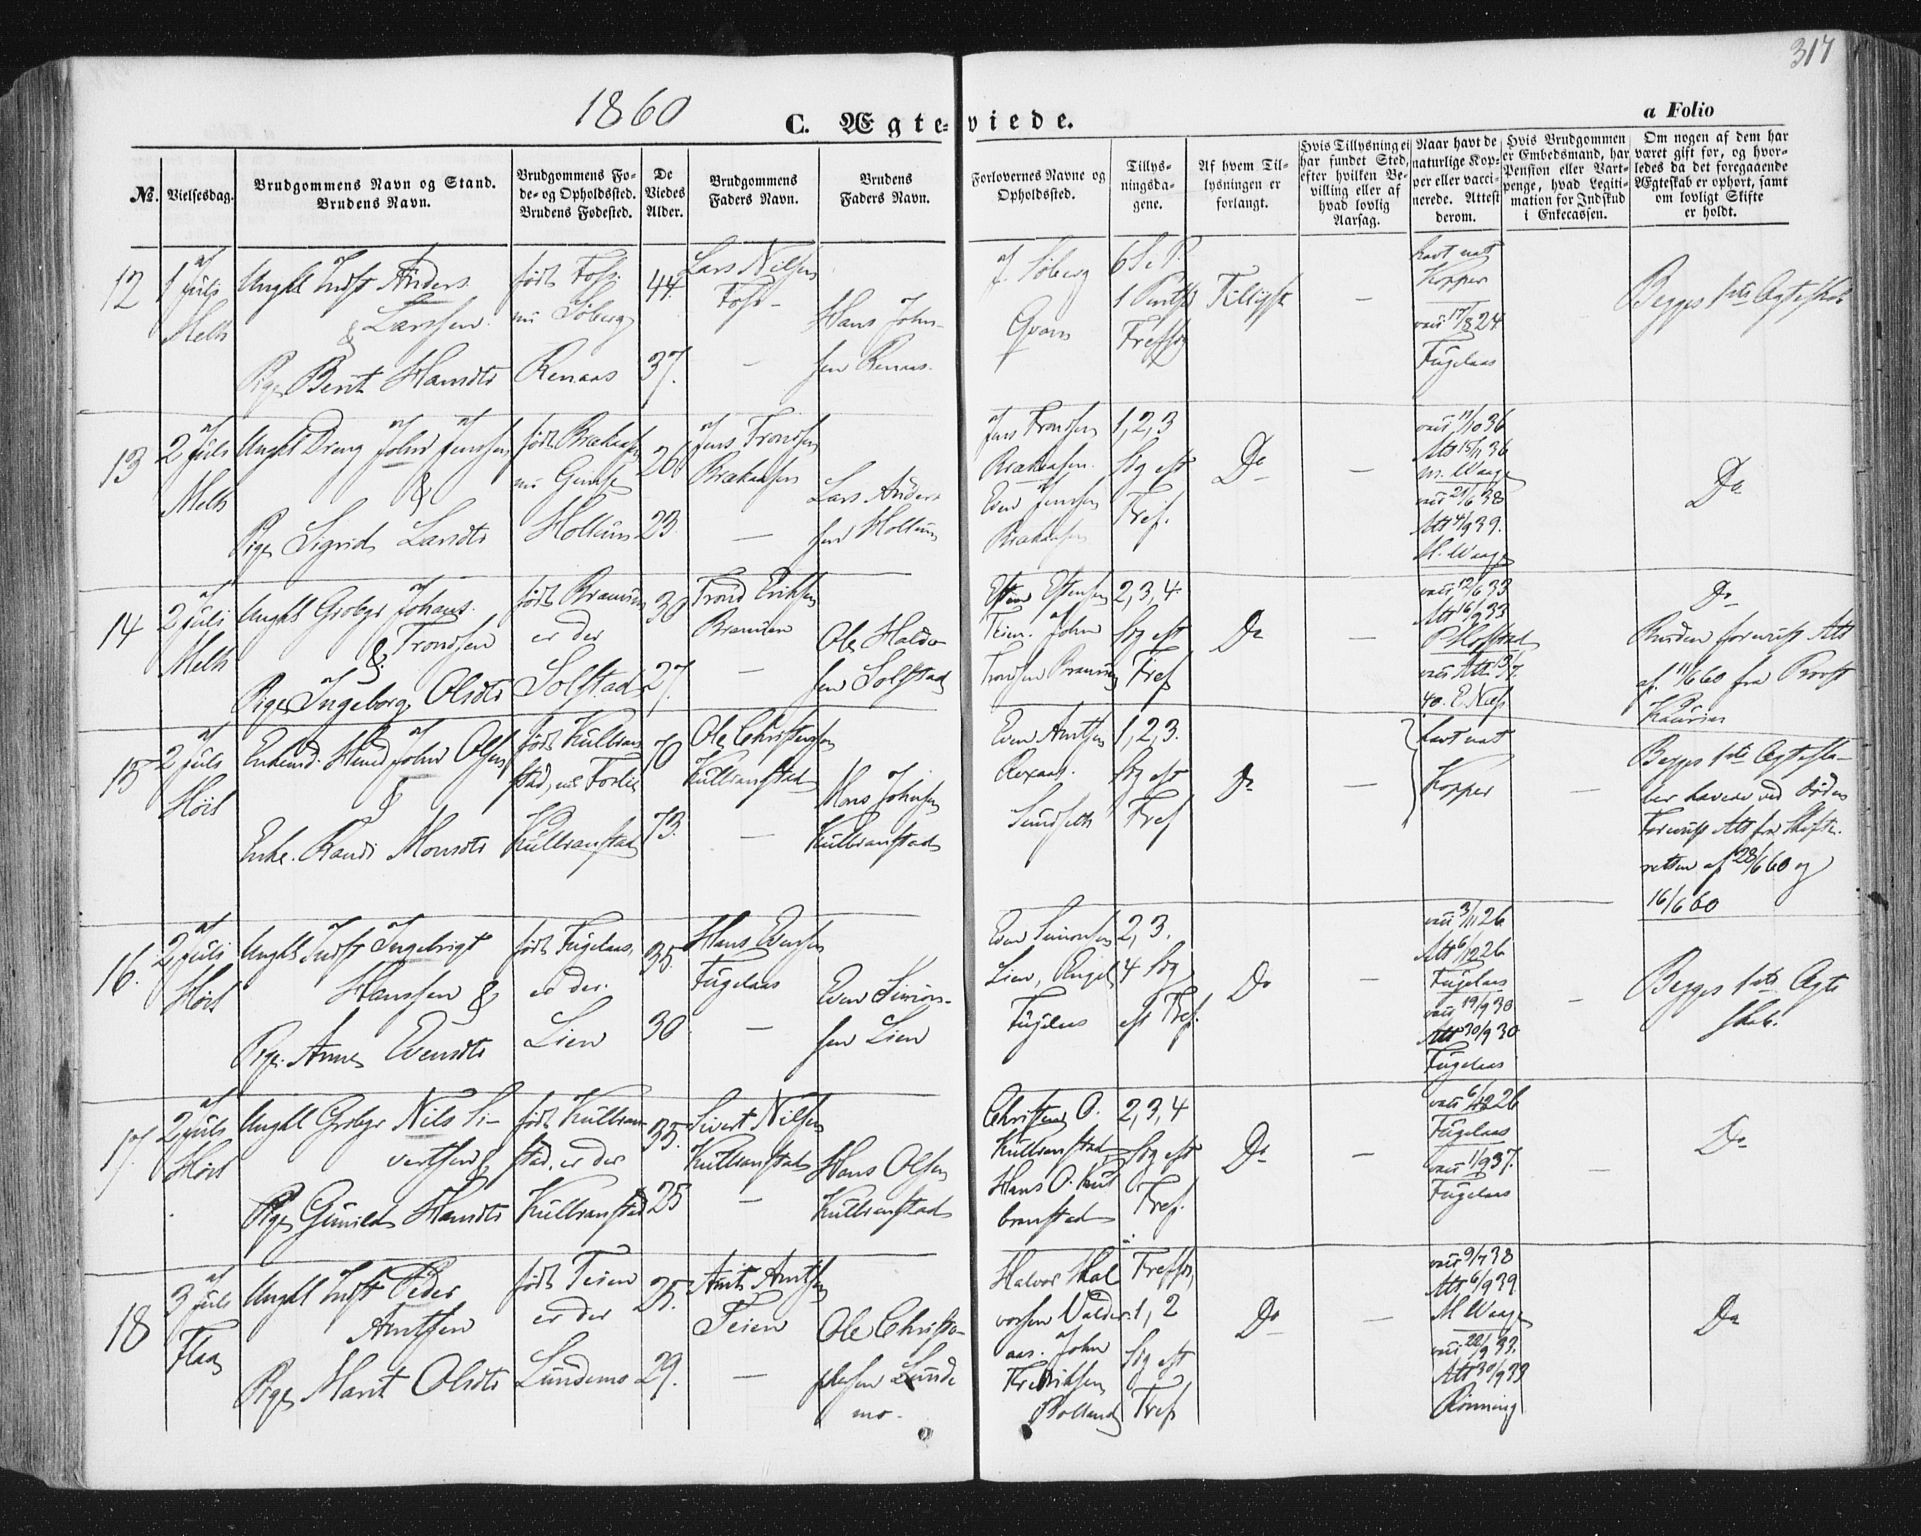 317
1860
C. Ægteviede.
a Folio
№.
Vielsesdag.
Brudgommens Navn og Stand.
Brudens Navn.
Brudgommens Fø-
de- og Opholdssted.
Brudens Fødested.
De
Viedes
Alder.
Brudgommens
Faders Navn.
Brudens
Faders Navn.
Forlovernes Navne og
Opholdssted.
Tillys-
ningsda-
gene.
Af hvem Til-
lysningen er
forlangt.
Hvis Tillysning ei
har fundet Sted,
efter hvilken Be-
villing eller af
hvad lovlig
Aarsag.
Naar havt de
naturlige Kop-
per eller vacci-
nerede. Attest
derom.
Hvis Brudgommen
er Embedsmand, har
Pension eller Vart-
penge, hvad Legiti-
mation for Indskud
i Enkecassen.
Om nogen af dem har
været gift for, og hvor-
ledes da det foregaaende
Ægteskab er ophørt, samt
om lovligt Skifte
er holdt.
12
1 Juli
Melh
Ungkl Indst Anders
Larssen
&
Pige Berit Hansdtr
født Foss
nu Søberg
Renaas
44.
37.
Lars Nilsen
Foss
Hans John-
sen Renaas.
Søberg
Qvam
Tillyst
havt nat
Kopper
vacc 17/8 24
Fuglaas
Begges 1ste Ægteskab
13
2 Juli
Melh
Ungkl Dreng John Jenssen
&
Pige Sigrid Larsdtr
født Brækaasen
nu Gimse
Hollum
26
23.
Jens Trondsen
Brækaasen
Lars Anders
sen Hollum
Jens Trondsen
Brækaasen.
Even Jenssen
Brækaasen
1, 2, 3
Søg eft
Tref.
Do
vacc 11/10 36
Att 15/11 36
M. Waage
vacc 21/6 38
Att 4/9 39.
M. Waage
Do
14
2 Juli
Melh
Ungkl Grdbgr Johans
Trondsen
&
Pige Ingeborg Olsdtr
født Bramien
er der
Solstad
30
27.
Trond Eriksen
Ole Haldor
sen Solstad
Esten Estensen
Teien. John
Trondsen
2, 3, 4.
Søg eft
Tref
Do
vacc 12/6 33
Att 16/9 33
vacc Att
40. E. Næss
Do
Bruden foreviist Att
af 11/6 60 fra Provst
Kaurin
15
2 Juli
Høil
Enkemd. John Olsen
&
Enke. Randi Monsdtr
født Kulbran
stad, nu
Kulbranstad
70
73.
Ole Christensen
Kulbranstad
Mons Johnsen
Kulbranstad
Even Arntsen
1, 2, 3.
Søg eft
Tref
Do
havt nat
Kopper
Begges 1ste Ægteska-
ber hævede ved Døden
Foreviist Att fra Skifte-
retten af 28/6 60 og
16/6 60
16.
2 Juli
Høil
Ungkl Indst Ingebrigt
Hanssen &
Pige. Anne Evensdtr
født Fuglaas,
er der.
Lien
35.
30
Hans Evensen
Fuglaas
Even Simon-
sen Lien
Even Simonsen
Lien, Engel
Fuglaas
2, 3.
4 Søg
eft Tref.
Do
vacc 3/11 26
Att 6/12 26
Fuglaas
vacc 19/9 30
Att 30/9 30
Fuglaas
Begges 1ste Ægte
skab.
17.
2 Juli
Høil
Ungkl Grdbgr Nils Si-
vertsen &
Pige Gunild Hansdtr
født Kulbran
stad, er der
Kulbranstad
35.
25
Sivert Nilsen
Kulbranstad
Hans Olsen
Kulbranstad
Christen O.
Kulbranstad
Hans O. Kul
branstad
2, 3, 4
Søg eft
Tref.
Do
vacc 6/12 26
Fuglaas
vacc 1/9 37.
Fuglaas
Do
18
3 Juli
Flaa
Ungkl Indst Peder
Arntsen
Pige Marit Olsdtr
født Teien
er der
Lundemo
25.
29.
Arnt Arntsen
Teien
Ole Christo-
phersen Lunde
mo.
Halvor Hal
vorsen Valder-
aas. John
Fredriksen
Bolland
1, 2
Søg eft
Tref
Do
vacc 9/7 38
Att 6/9 39
M Waage
vacc 22/9 33.
Att 30/9 33
Rønning
Do